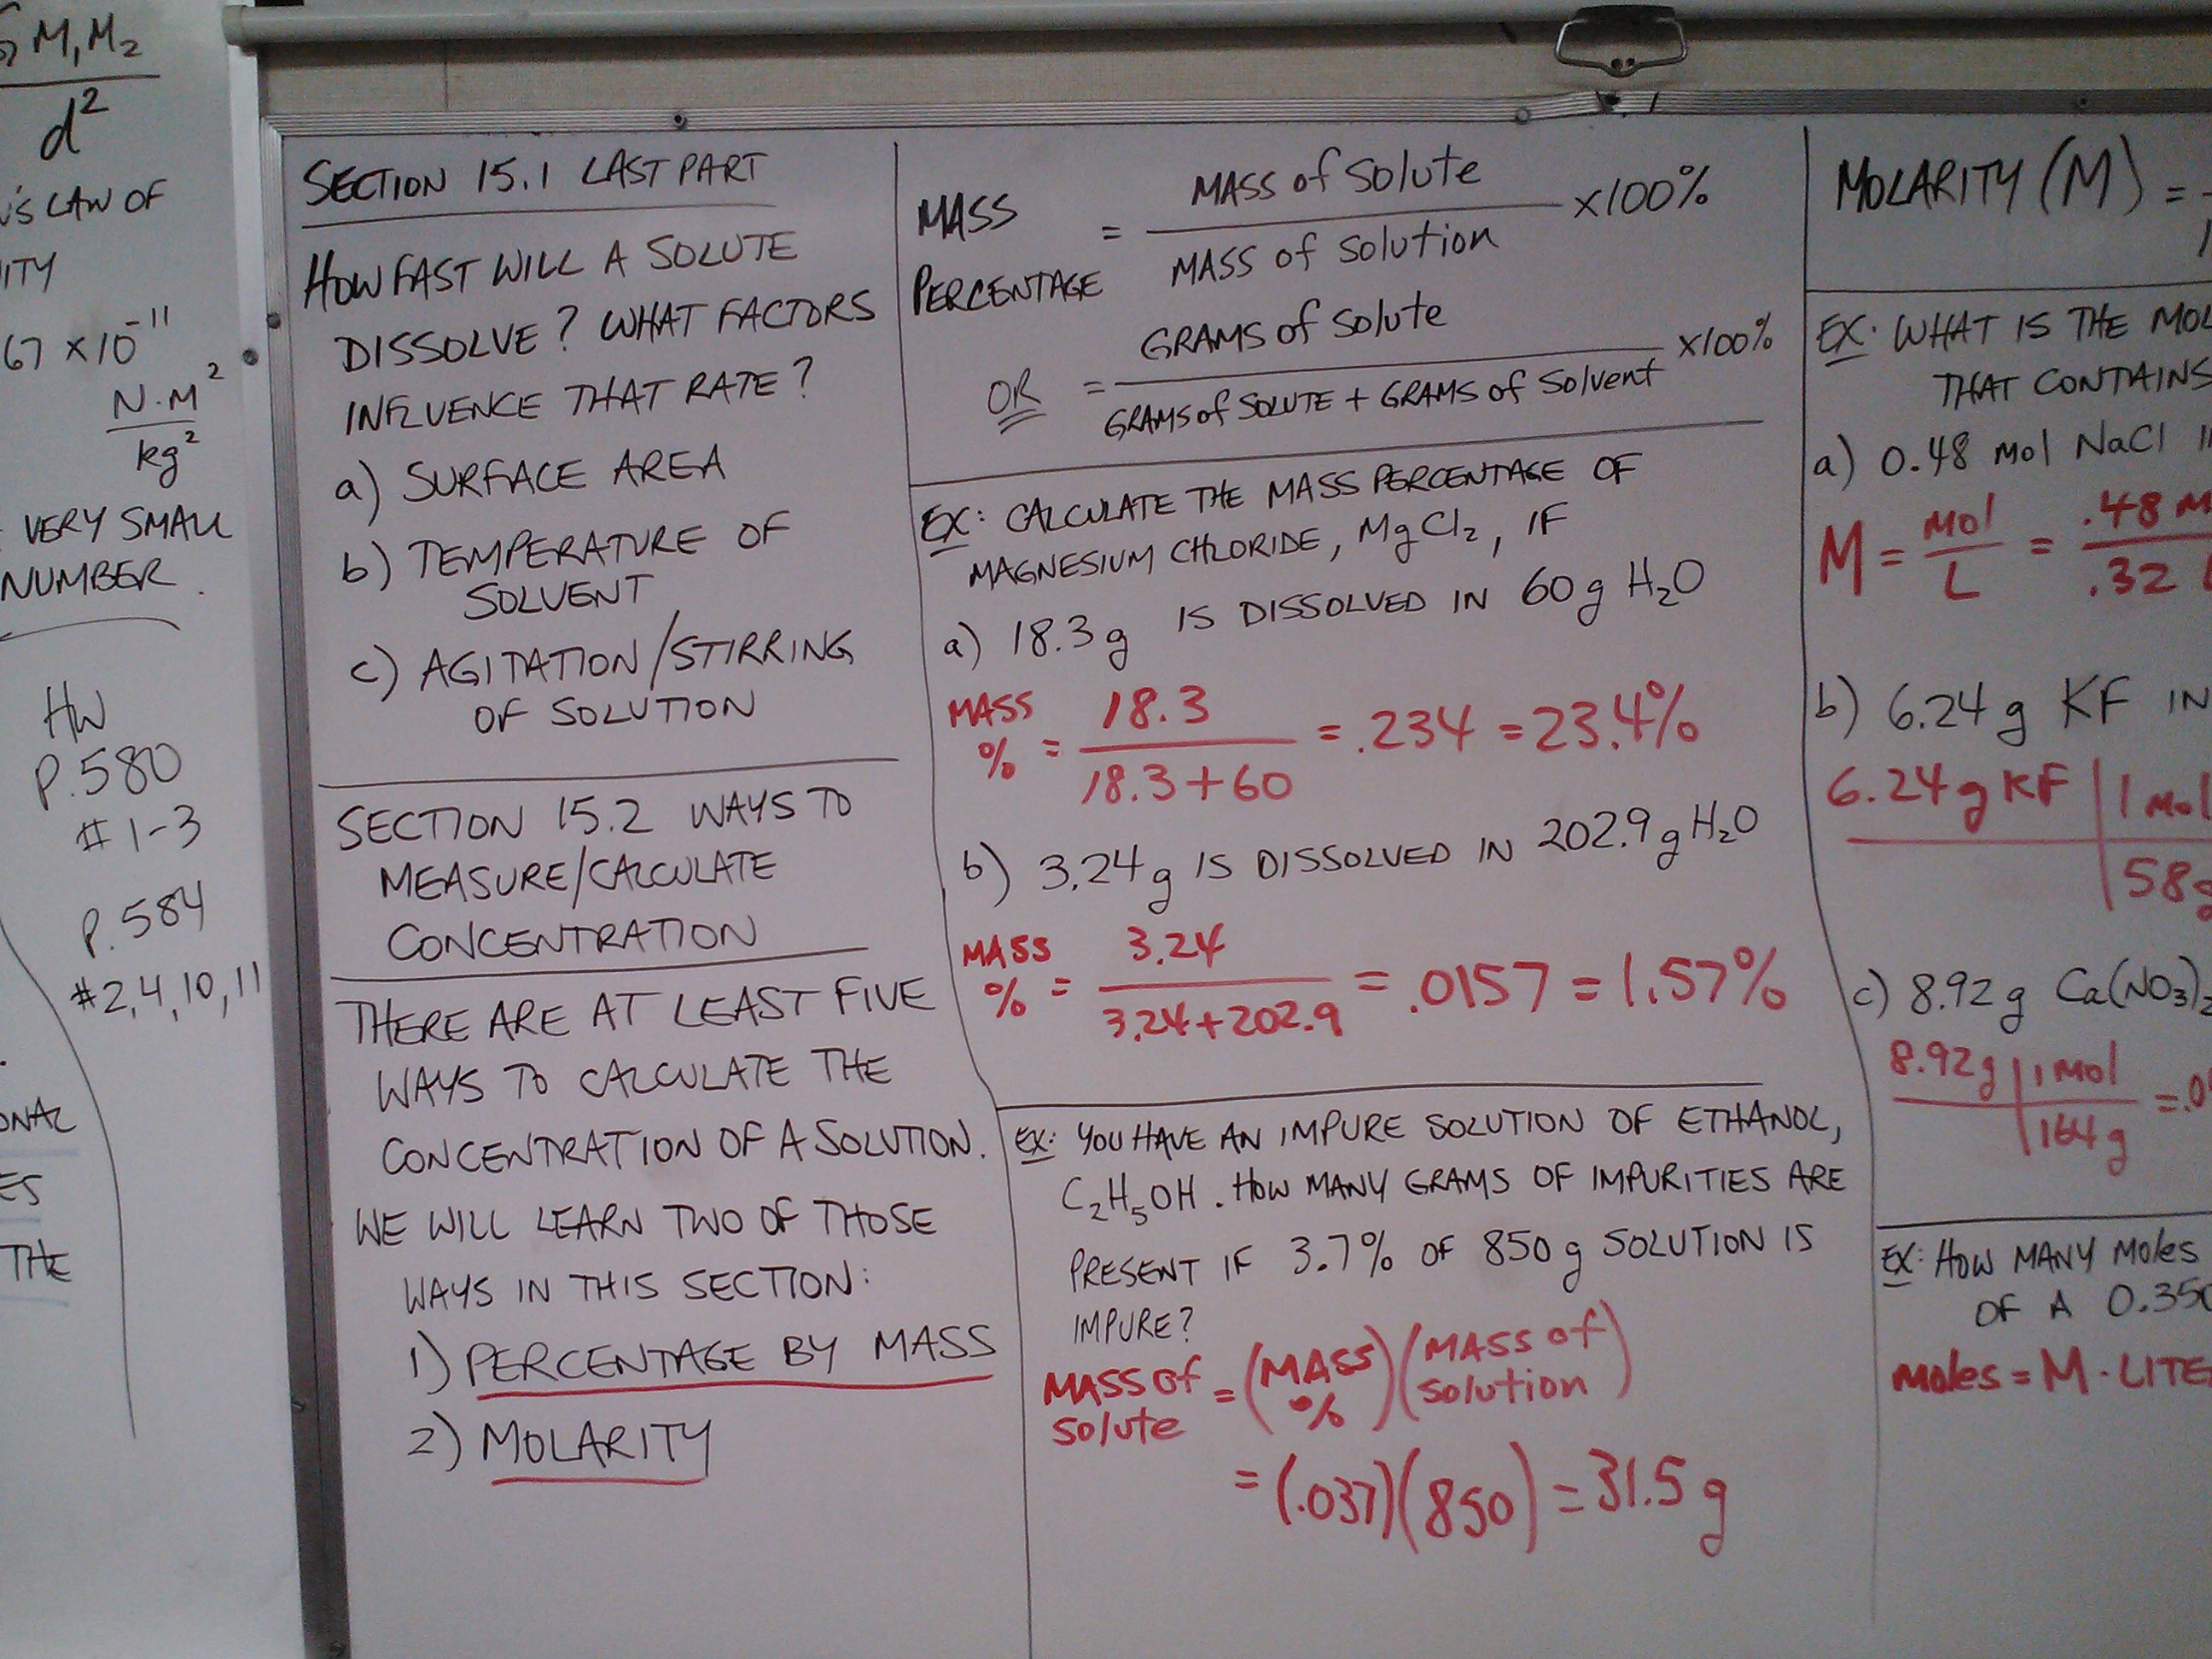 M₁M₂
d²
LAW OF
67 x 10⁻¹¹
N·M²
kg²
VERY SMALL
NUMBER.
HW
P.580
# 1-3
P.584
#2,4,10,11
THE
SECTION 15.1 LAST PART
HOW FAST WILL A SOLUTE
DISSOLVE? WHAT FACTORS
INFLUENCE THAT RATE?
a) SURFACE AREA
b) TEMPERATURE OF
SOLVENT
c) AGITATION/STIRRING
OF SOLUTION
SECTION 15.2 WAYS TO
MEASURE/CALCULATE
CONCENTRATION
THERE ARE AT LEAST FIVE
WAYS TO CALCULATE THE
CONCENTRATION OF A SOLUTION.
WE WILL LEARN TWO OF THOSE
WAYS IN THIS SECTION:
1) PERCENTAGE BY MASS
2) MOLARITY
MASS PERCENTAGE = MASS of Solute / MASS of Solution x100%
OR = GRAMS of Solute / GRAMS of SOLUTE + GRAMS of Solvent x100%
EX: CALCULATE THE MASS PERCENTAGE OF
MAGNESIUM CHLORIDE, MgCl₂, IF
a) 18.3g IS DISSOLVED IN 60g H₂O
MASS % = 18.3 / 18.3+60 = .234 = 23.4%
b) 3.24g IS DISSOLVED IN 202.9g H₂O
MASS % = 3.24 / 3.24+202.9 = .0157 = 1.57%
EX: YOU HAVE AN IMPURE SOLUTION OF ETHANOL,
C₂H₅OH. HOW MANY GRAMS OF IMPURITIES ARE
PRESENT IF 3.7% OF 850g SOLUTION IS
IMPURE?
MASS of Solute = (MASS %)(MASS of Solution)
= (.037)(850) = 31.5g
MOLARITY (M) =
EX: WHAT IS THE
THAT CONTAINS
a) 0.48 mol NaCl
M = Mol / L = .48 / .32
b) 6.24g KF IN
6.24g KF | 1 Mol
58g
c) 8.92g Ca(NO₃)₂
8.92g | 1 Mol = .0
164g
EX: HOW MANY Moles
OF A 0.350
Moles = M ·